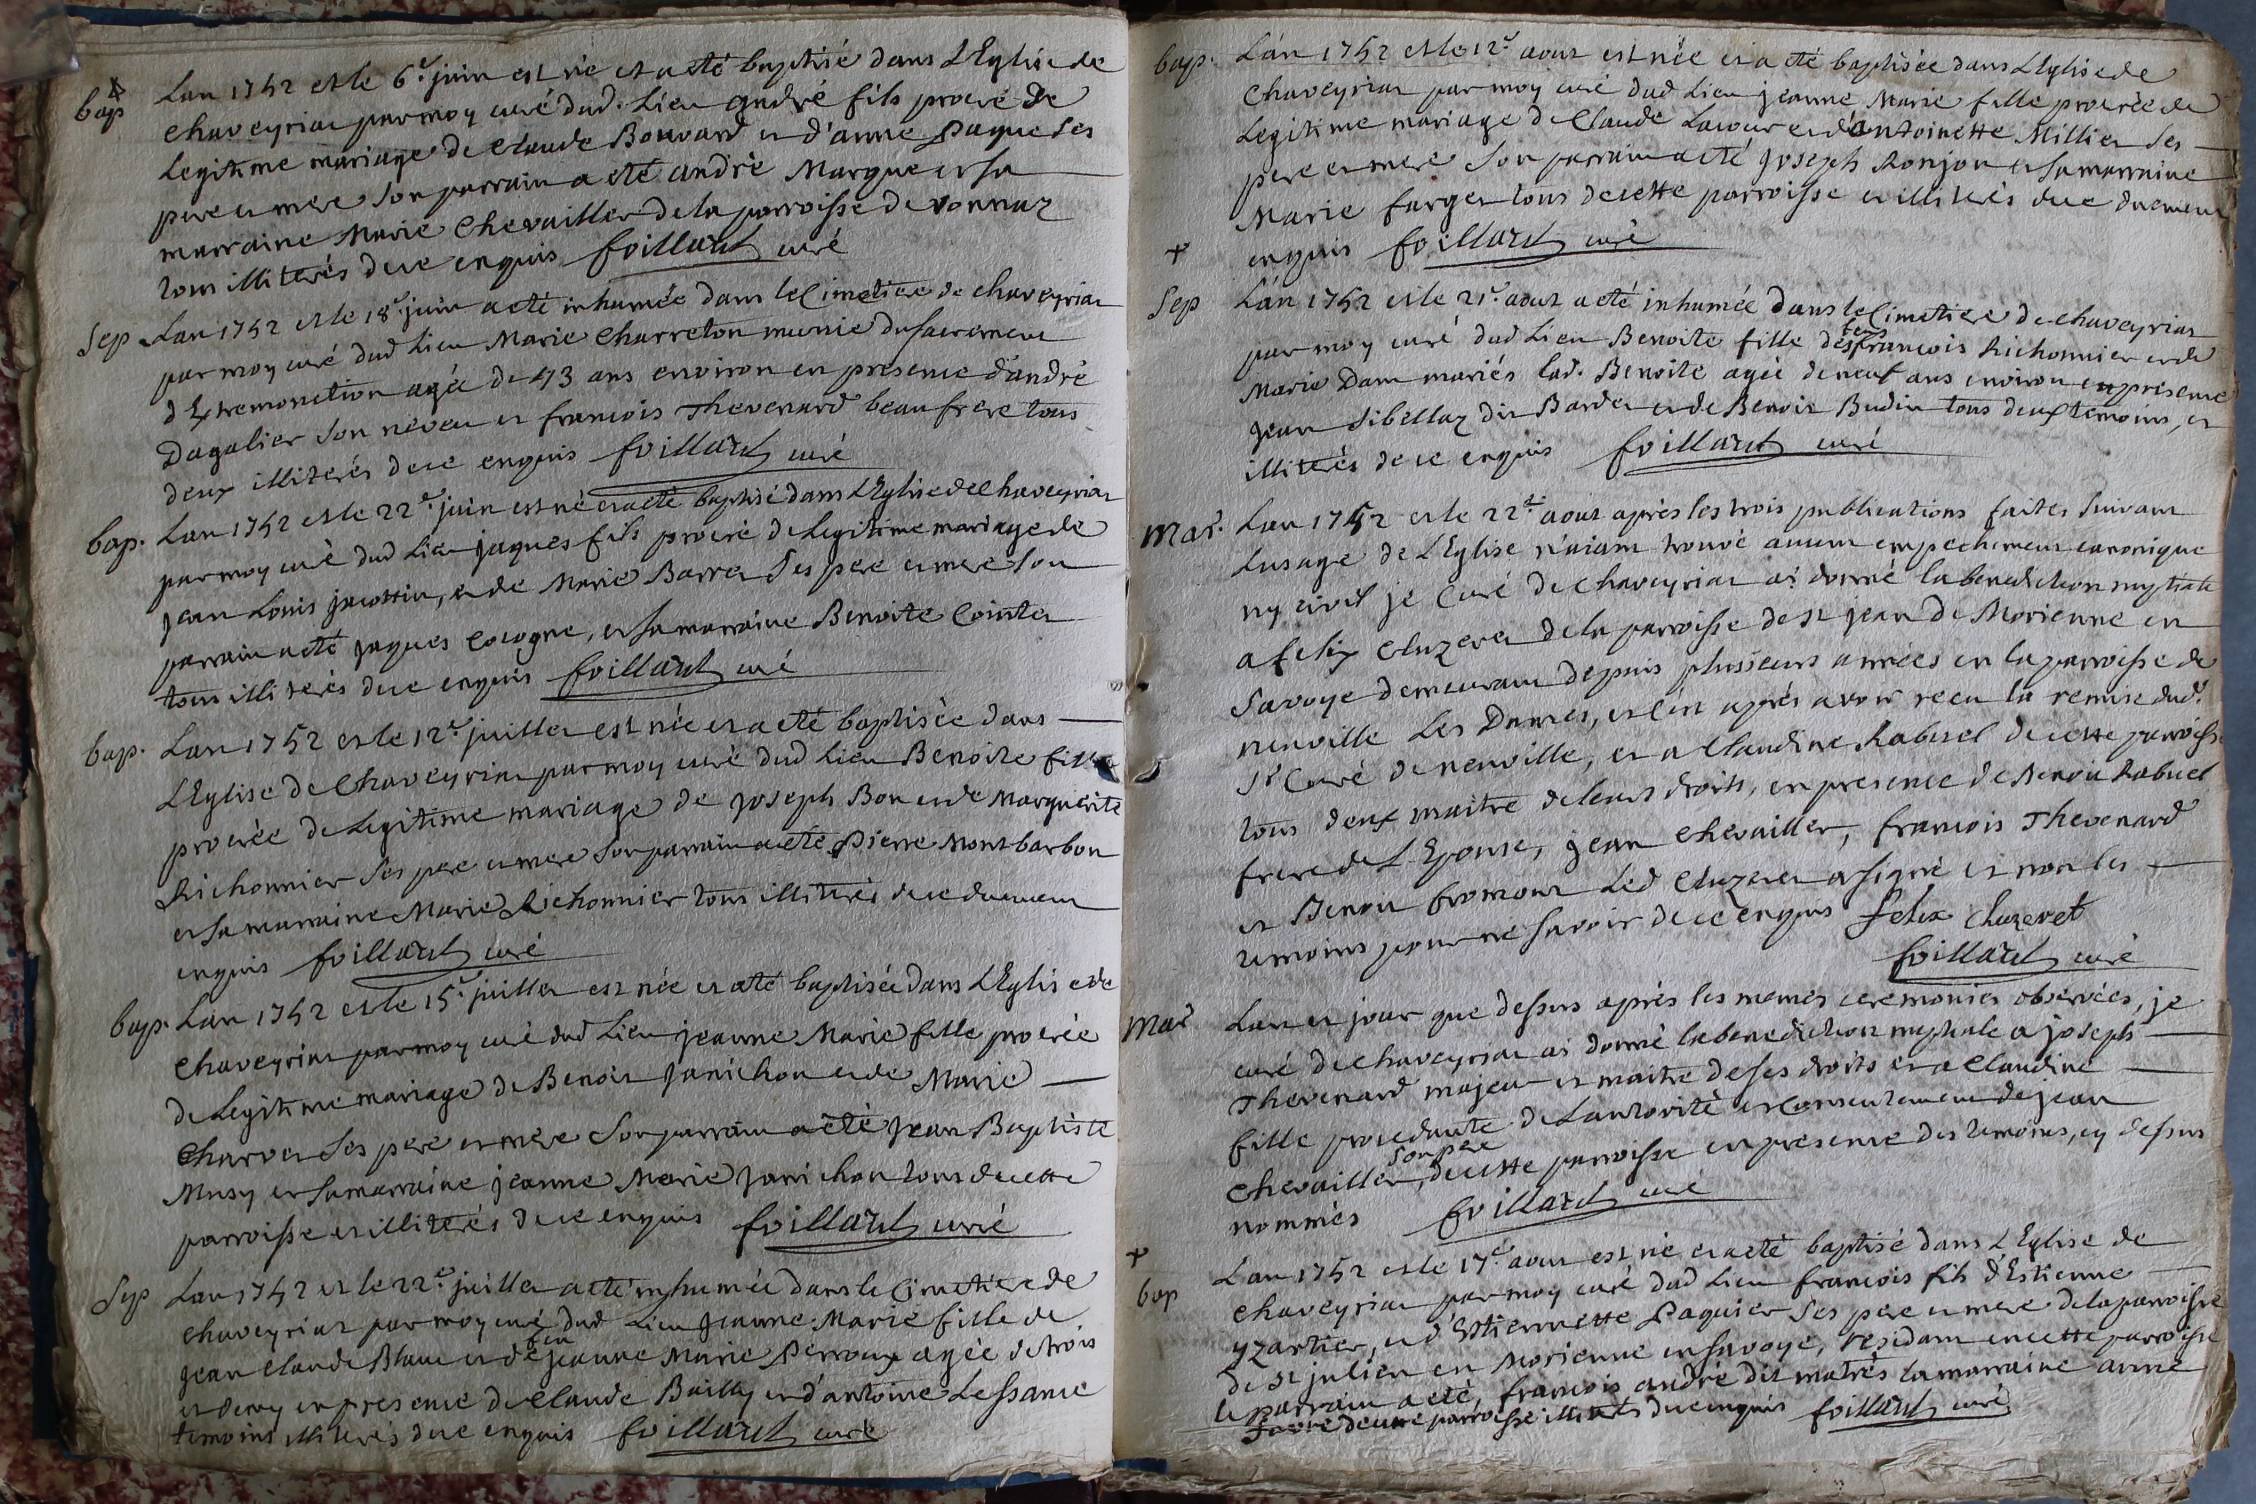 bap Lan 1752 et le 6e juin est né et a eté baptisé dans L'Eglise de
Chaveyriat par moy curé dud. Lieu andré fils procréé de
Legitime mariage de Claude Bouvard et d'anne Paque ses
pere et mere son parrain a eté andrè Marque et sa
marraine Marie Chevailler de la parroisse de vonnaz
tous illiterés de ce enquis foillard curé
Sep Lan 1752 et le 18e juin a eté inhumée dans le Cimetiere de chaveyriat
par moy curé dud Lieu Marie Charreton munie du sacrement
d'Extremonction agée de 43 ans environ en presence d'andré
Dagalier son neveu et francois Thevenard beau frere tous
deux illiterés de ce enquis foillard curé
bap. Lan 1752 et le 22e juin est né et a eté baptisé dans L'Eglise de Chaveyriat
par moy curé dud Lieu jaques fils procréé de Legitime mariage de
jean Louis jacottin, et de Marie Barret ses pere et mere son
parrain a eté jaques Cocogne, et sa marraine Benoite Cointet
tous illiterés de ce enquis foillard curé
bap. Lan 1752 et le 12e juillet est née et a eté baptisée dans
L'Eglise de Chaveyriat par moy curé dud Lieu Benoite fille
procréée de Legitime mariage de joseph Bon et de Marguerite
Richonnier ses pere et mere son parrain a eté Pierre Montbarbon
et sa marraine Marie Richonnier tous illiterés de ce duement
enquis foillard curé
bap. Lan 1752 et le 15e juillet est née et a eté baptisée dans L'Eglise de
Chaveyriat par moy curé dud Lieu jeanne Marie fille procréée
de Legitime mariage de Benoit janichon et de Marie
Charvet ses pere et mere son parrain a eté jean Baptiste
Musy et sa marraine jeanne Marie janichon tous de cette
parroisse et illiterés de ce enquis foillard curé
Sep Lan 1752 et le 22e juillet a eté inhumée dans le Cimetiere de
chaveyriat par moy curé dud Lieu jeanne Marie fille de
jean Claude Blanc et de feu jeanne Marie Perroux agée de trois
et demy en presence de Claude Bailly et d'antoine Lessance
temoins illiterés de ce enquis foillard curé
bap. Lan 1752 et le 12e aout est née et a eté baptisée dans L'Eglise de
Chaveyriat par moy curé dud Lieu jeanne Marie fille procréée de
Legitime mariage de Claude Lacour et d'antoinette Millier ses
pere et mere son parrain a eté joseph Ronjon et sa marraine
Marie farget tous de cette parroisse et illiterés de ce duement
enquis foillard curé
+
Sep Lan 1752 et le 21e aout a eté inhumée dans le Cimetiere de chaveyriat
par moy curé dud Lieu Benoite fille des feus francois Richonnier et de
Marie Dam mariés lad. Benoite agée de neuf ans environ en presence
jean sibellaz dit Bardet et de Benoit Budin tous deux temoins, et
illiterés de ce enquis foillard curé
Mar. Lan 1752 et le 22e aout aprés les trois publications faites suivant
Lusage de L'Eglise n'aiant trouvé aucun empechement canonique
ny civil je Curé de chaveyriat ai donné la benediction nuptiale
a felix Cluzeret de la parroisse de st jean de Morienne en
savoye demeurant depuis plusieurs années en la parroisse de
neuville Les Dames, et ce aprés avoir recu la remise dud.
sr Curé de neuville, et a Claudine Rabuel de cette parroisse
tous deux maitre de leurs droits, en presence de Benoit Rabuel
frere de L'Epouse, jean Chevailler, francois Thevenard
et Benoit bromont Led Cluzeret a signé et non les
temoins pour ne savoir de ce enquis felix Cluzeret
foillard curé
Mar Lan et jour que dessus aprés les memes ceremonies observées, je
curé de chaveyriat ai donné la benediction nuptiale a joseph
Thevenard majeur et maitre de ses droits et a Claudine
fille procedante de Lautorité et Consentement de jean
Chevailler, son pere de cette parroisse en presence des temoins, cy dessus
nommés foillard curé
+
bap Lan 1752 et le 17e aout est né et a eté baptisé dans L'Eglise de
Chaveyriat par moy curé dud Lieu francois fils d'Estienne
yzartier, et d'Estiennette Paquier ses pere et mere de la parroisse
de st julien en Morienne en savoye, residant en cette parroisse
le parrain a eté francois andré dit matrés la marraine anne
favre de cette parroisse illiterés de ce enquis foillard curé